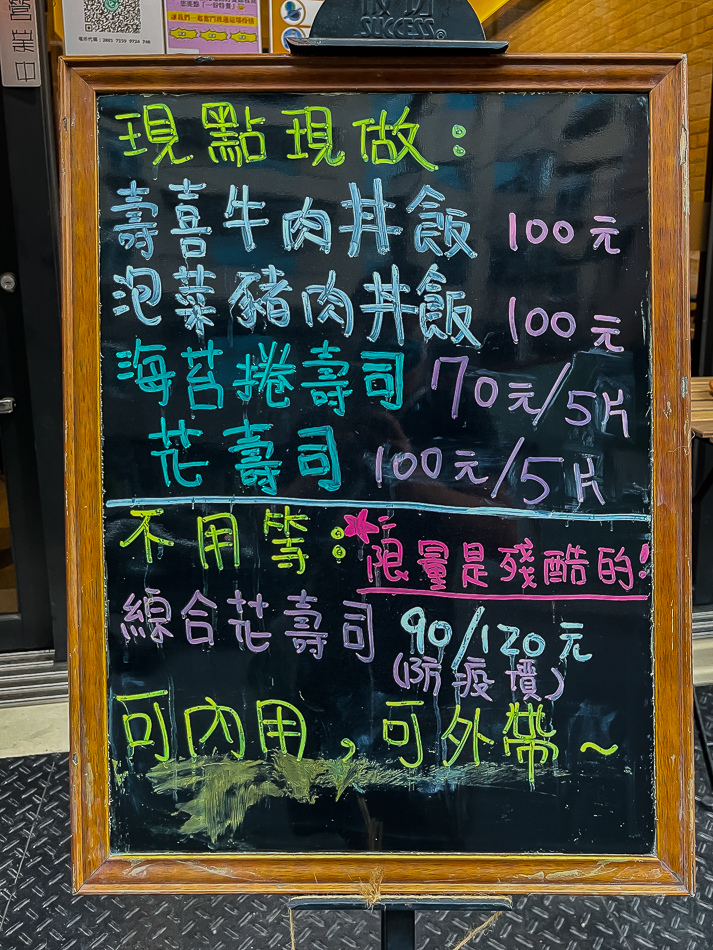 營業中
SUCCESS
現點現做:
壽喜牛肉丼飯 100元
泡菜豬肉丼飯 100元
海苔捲壽司 70元/5片
花壽司 100元/5片
不用等: 限量是殘酷的!
線合花壽司 90/120元
(防疫價)
可內用,可外帶~